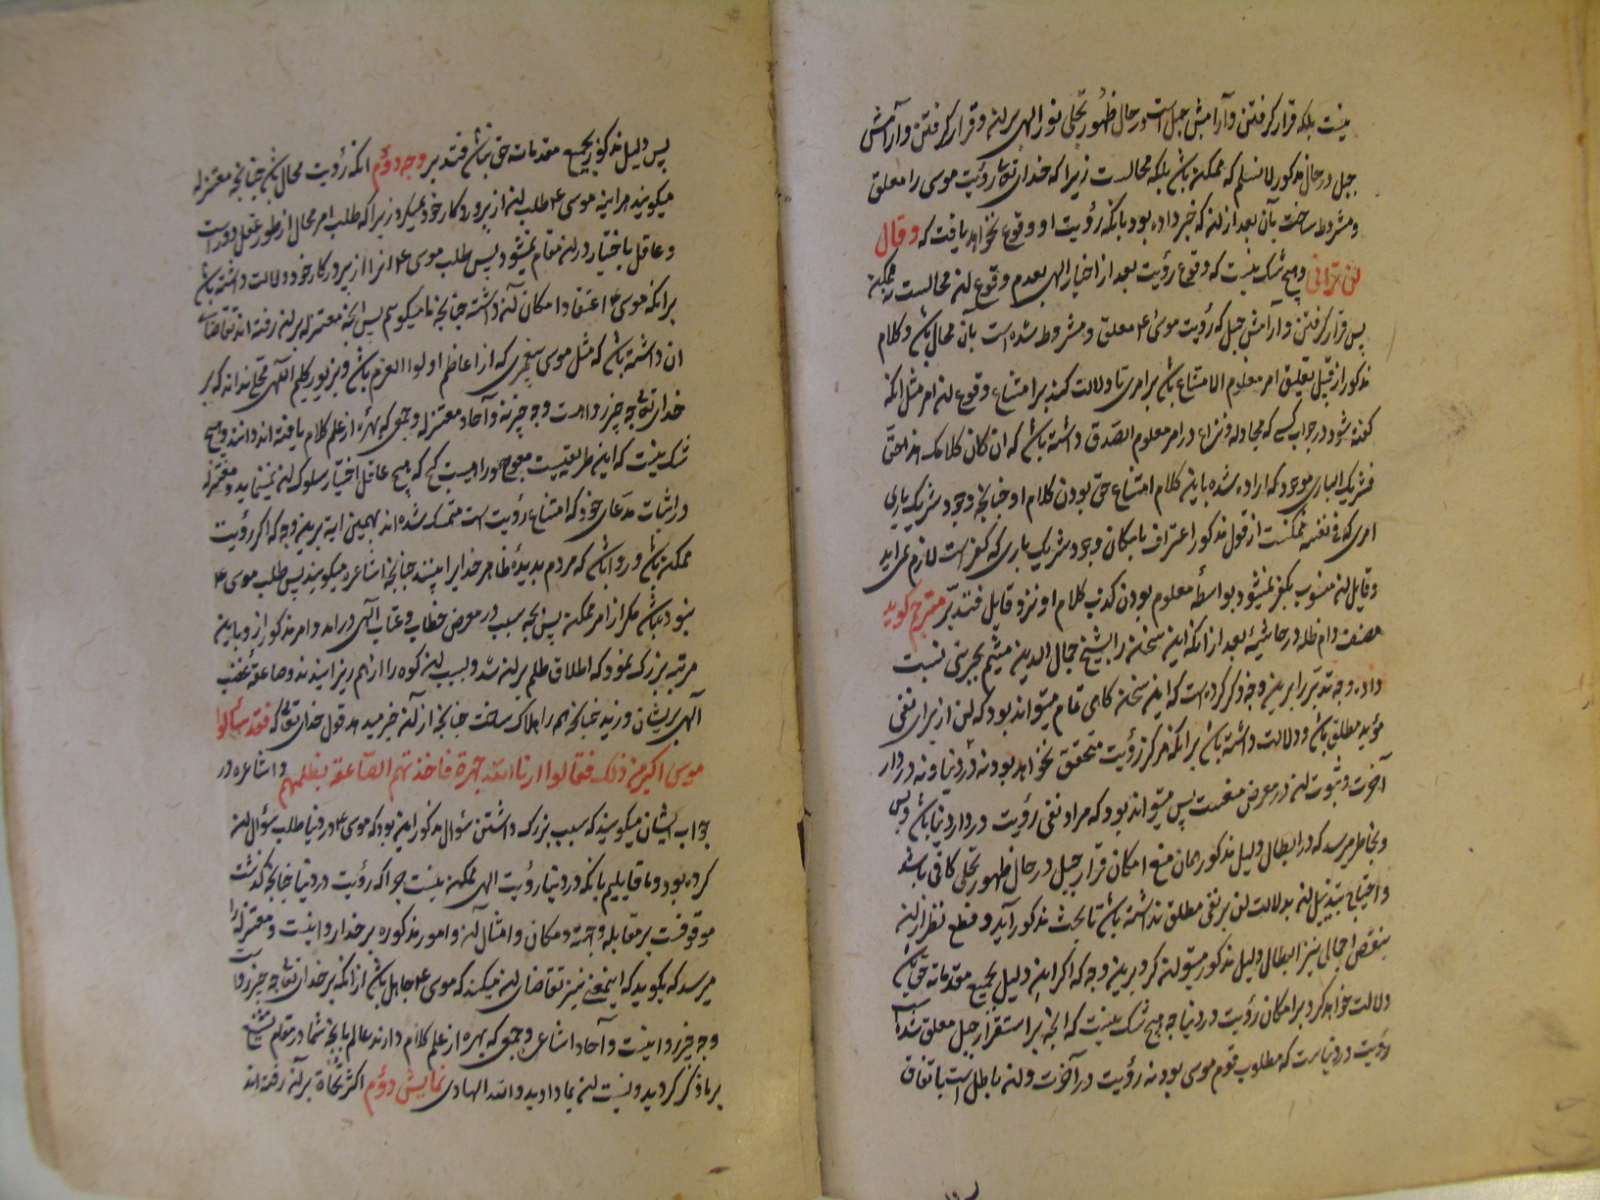 نیست بلکه قرار گرفتن و آرامش جبل است در حال ظهور تجلی نور الهی بر آن و قرار گرفتن و آرامش
جبل در حال مذکور لانسلم که ممکن باشد بلکه محالست زیرا که خدای تعالی رؤیت موسی را معلق
و مشروط ساخت بآن بعد از آن که خبر داده بود بانکه رؤیت او وقوع نخواهد یافت که وقال
لن ترانی و هیچ شک نیست که وقوع رؤیت بعد از اخبار الهی بعدم وقوع آن محالست نه ممکن
پس قرار گرفتن و آرامش جبل که رؤیت موسی ع معلق و مشروط شده است بآن محال باشد و کلام
مذکور از قبیل تعلیق امر معلوم الامتناع باشد بر امری تا دلالت کند بر امتناع وقوع آن امر مثل انکه
گفته شود در جواب کسی که مجادله و نزاع در امر معلوم الصدق داشته باشد که ان کان کلامک هذا حقا
فشریک الباری موجود که اراده شده باین کلام امتناع حق بودن کلام او چنانچه وجود شریک باری
امری که فی نفسه ممکنست از قول مذکور اعتراف بامکان وجود شریک باری که کفر است لازم نمی اید
و قایل آن منسوب بکفر نمیشود بواسطه معلوم بودن کذب کلام او نزد قایل فتدبر مترجم گوید
مصنف دام ظله در حاشیه بعد از انکه این سخن را بشیخ جمال الدین میثم بحرینی نسبت
داده وجه تدبر را برین وجه ذکر کرده است که این سخن گاهی تمام میتواند بود که لن از برای نفی
مؤبد مطلق باشد و دلالت داشته باشد بر انکه هرگز رؤیت متحقق نخواهد بود نه در دنیا و نه در دار
آخرت و ثبوت آن در معرض منعست پس میتواند بود که مراد نفی رؤیت در دار دنیا باشد و بس
و بخاطر میرسد که در ابطال دلیل مذکور همان منع امکان قرار جبل در حال ظهور تجلی کافی باشد
و احتیاج بتذییل آن بدلالت لن بر نفی مطلق نداشته باشد تا بحث مذکور آید و قطع نظر از آن
بنقض اجمالی نیز ابطال دلیل مذکور میتوان کرد برین وجه که اگر این دلیل بجمیع مقدماته حق باشد
دلالت خواهد کرد بر امکان رؤیت در دنیا چه هیچ شک نیست که آنچه بر استقرار جبل معلق شده
رؤیت در دنیاست که مطلوب قوم موسی بود نه رؤیت در آخرت و آن باطل است باتفاق
پس دلیل مذکور بجمیع مقدماته حق نباشد فتدبر وجه دوم انکه رؤیت محال باشد چنانچه معتزله
میگویند هر اینه موسی ع طلب آن از پروردگار خود نمیکرد زیرا که طلب امر محال از طور عقل دور است
و عاقل باختیار در آن مقام نمیشود پس طلب موسی ع آنرا از پروردگار خود دلالت داشته باشد
بر انکه موسی ع اعتقاد امکان آن داشته چنانچه ما میگوییم پس آنچه معتزله بر آن رفته اند تقاضای
ان داشته باشد که مثل موسی پیغمبری که از اعاظم اولوا العزم باشد و بزیور کلیم اللهی محلی نداند که بر
خدای تعالی چه چیز رواست و چه چیز نه و آحاد معتزله و جمعی که بهره از علم کلام یافته اند دانند و هیچ
شک نیست که این طریقیست معوج و راهیست کج که هیچ عاقل اختیار سلوک آن نمینماید و معتزله
در اثبات مدعای خود که امتناع رؤیت است متمسک شده اند بهمین ایه برین وجه که اگر رؤیت
ممکن باشد و روا باشد که مردم بدیده ظاهر خدا را ببینند چنانچه اشاعره میگویند پس طلب موسی ع
نبوده باشد مگر از امر ممکن پس بچه سبب در معرض خطاب و عتاب الهی در امد و امر مذکور ازو باین
مرتبه بزرگ نمود که اطلاق ظلم بر ان شد و بسبب آن کوه را از هم ریزانیدند و صاعقه غضب
الهی بر یشان وزید چنانچه همه را هلاک ساخت چنانچه از آن خبر میدهد قول خدای تعالی که فقد سألوا
موسی اکبر من ذلک فقالوا ارنا الله جهرة فاخذتهم الصاعقة بظلمهم و اشاعره در
جواب ایشان میگویند که سبب بزرگ داشتن سؤال مذکور این بود که موسی ع در دنیا طلب سؤال آن
کرده بود و ما قایلیم بانکه در دنیا رؤیت الهی ممکن نیست چرا که رؤیت در دنیا چنانچه گذشت
موقوفست بر مقابله و جهة و مکان و امثال آن و امور مذکوره بر خدا روا نیست و معتزله را
میرسد که بگوید که اینمعنی نیز تقاضای آن میکند که موسی ع جاهل باشد از انکه بر خدای تعالی چه چیز رواست
و چه چیز روا نیست و آحاد اشاعره و جمعی که بهره از علم کلام دارند عالم بآنچه شما در مقام تشنیع
بر ما ذکر کردید و نسبت آن بما دادید والله الهادی نمایش دوم اکثر نحاة بر آن رفته اند